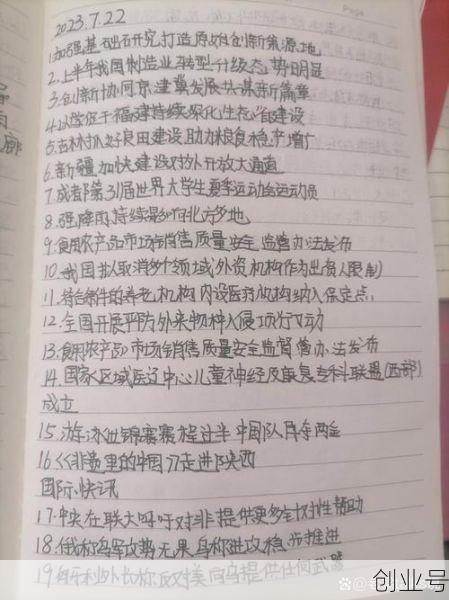 2023.7.22
1.加强基础研究打造原始创新策源地
2.上半年我国制造业转型升级态势明显
3.创新协同京津冀发展共谋新篇章
4.福建持续深化生态省建设
5.吉林抓好良田建设助力粮食稳产增广
6.新疆加快建设对外开放大通道
7.成都第31届世界大学生夏季运动会运动员
8.强降雨持续影响北方多地
9.食用农产品市场销售质量安全监督办法发布
10.我国拟取消多个领域外资机构作为出资人限制
11.符合条件的养老机构内设医疗机构纳入保定点
12.全国开展严防外来物种入侵项行动
13.食用农产品市场销售质量安全监督管办法发布
14.国家区域医疗中心儿童神经及康复专科联盟(西部)
成立
15.游泳世锦赛赛程过半中国队再夺两金
16.《非遗里的中国》走进陕西
国际快讯
17.中央在联大呼吁对非提供更多全球性帮助
18.俄称乌军攻势无果乌称进攻稳步推进
19.匈牙利外长称反对美向乌提供任何武器
创业号